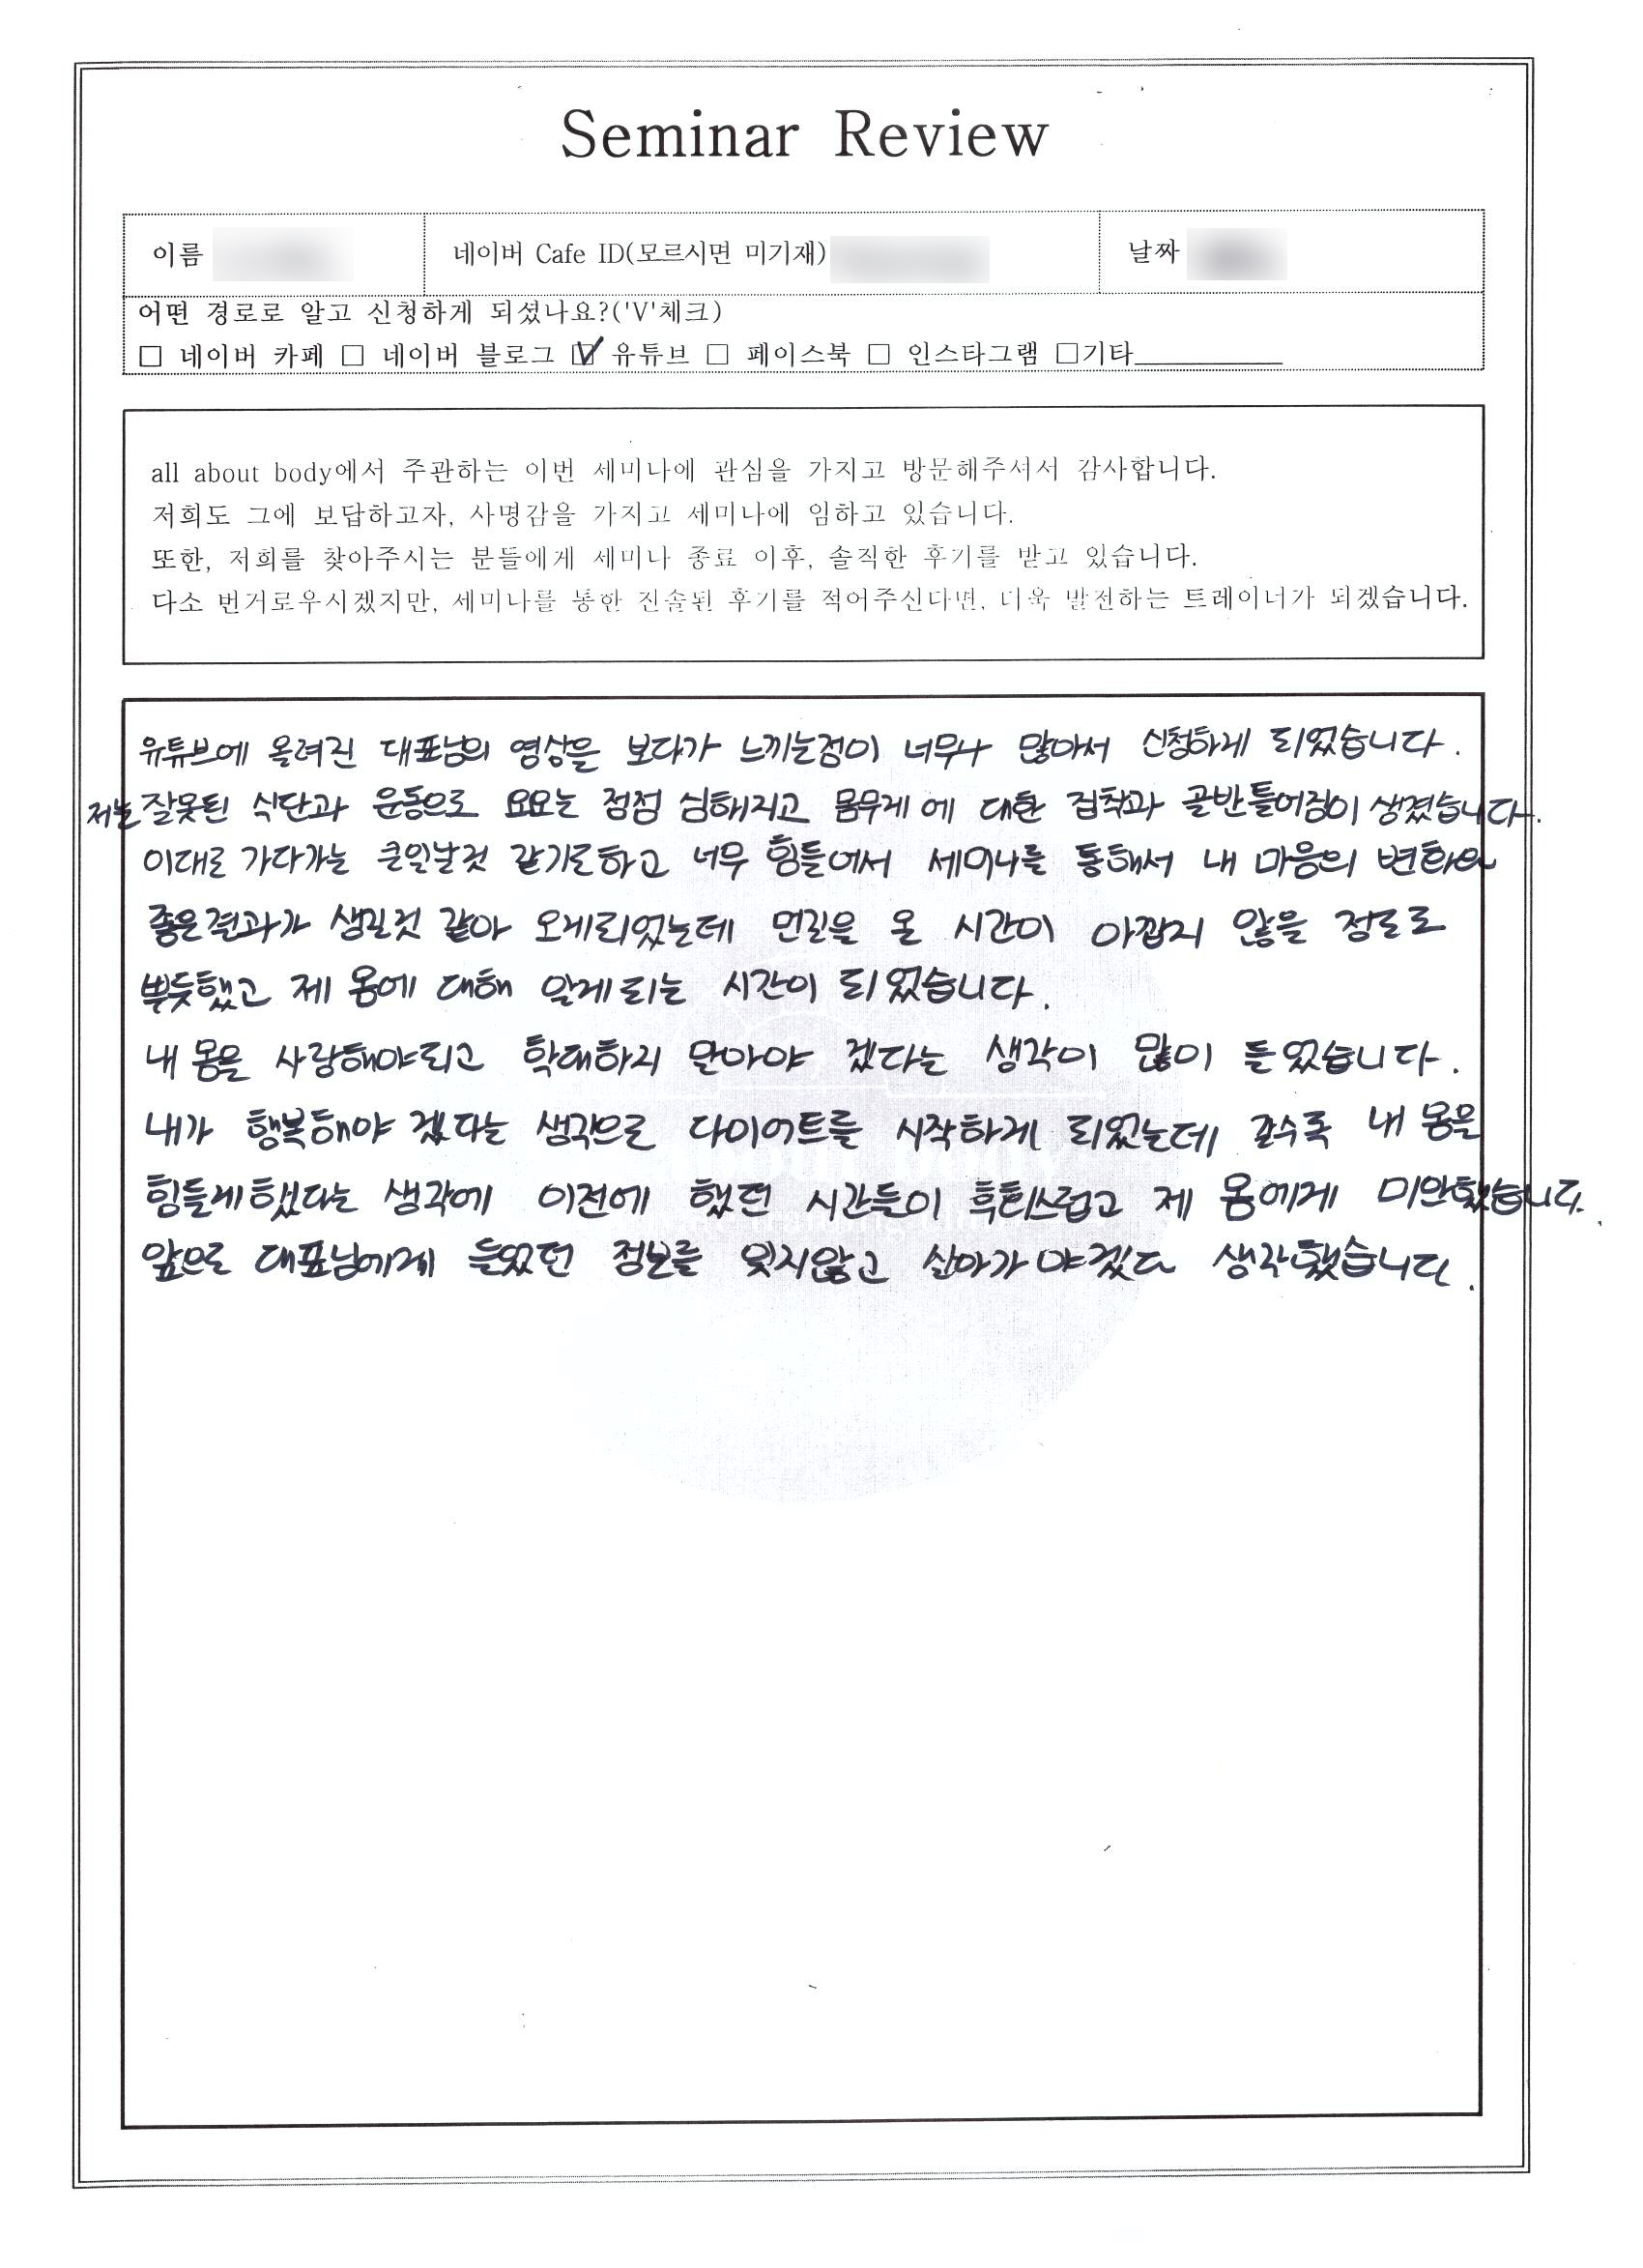 Seminar Review
이름
네이버 Cafe ID(모르시면 미기재)
날짜
어떤 경로로 알고 신청하게 되셨나요?('V'체크)
□ 네이버 카페 □ 네이버 블로그 ☑ 유튜브 □ 페이스북 □ 인스타그램 □기타
all about body에서 주관하는 이번 세미나에 관심을 가지고 방문해주셔서 감사합니다.
저희도 그에 보답하고자, 사명감을 가지고 세미나에 임하고 있습니다.
또한, 저희를 찾아주시는 분들에게 세미나 종료 이후, 솔직한 후기를 받고 있습니다.
다소 번거로우시겠지만, 세미나를 통한 진솔된 후기를 적어주신다면, 더욱 발전하는 트레이너가 되겠습니다.
유튜브에 올려진 대표님의 영상을 보다가 느끼는점이 너무나 많아서 신청하게 되었습니다.
저는 잘못된 식단과 운동으로 요요는 점점 심해지고 몸무게에 대한 집착과 골반틀어짐이 생겼습니다.
이대로 가다가는 큰일날것 같기도하고 너무 힘들어서 세미나를 통해서 내 마음의 변화와
좋은결과가 생길것 같아 오게되었는데 먼길을 온 시간이 아깝지 않을 정도로
뿌듯했고 제 몸에 대해 알게되는 시간이 되었습니다.
내 몸을 사랑해야되고 학대하지 말아야 겠다는 생각이 많이 들었습니다.
내가 행복해야 겠다는 생각으로 다이어트를 시작하게 되었는데 갈수록 내 몸을
힘들게했다는 생각에 이전에 했던 시간들이 후회스럽고 제 몸에게 미안했습니다.
앞으로 대표님에게 들었던 정보를 잊지않고 살아가야겠다 생각했습니다.